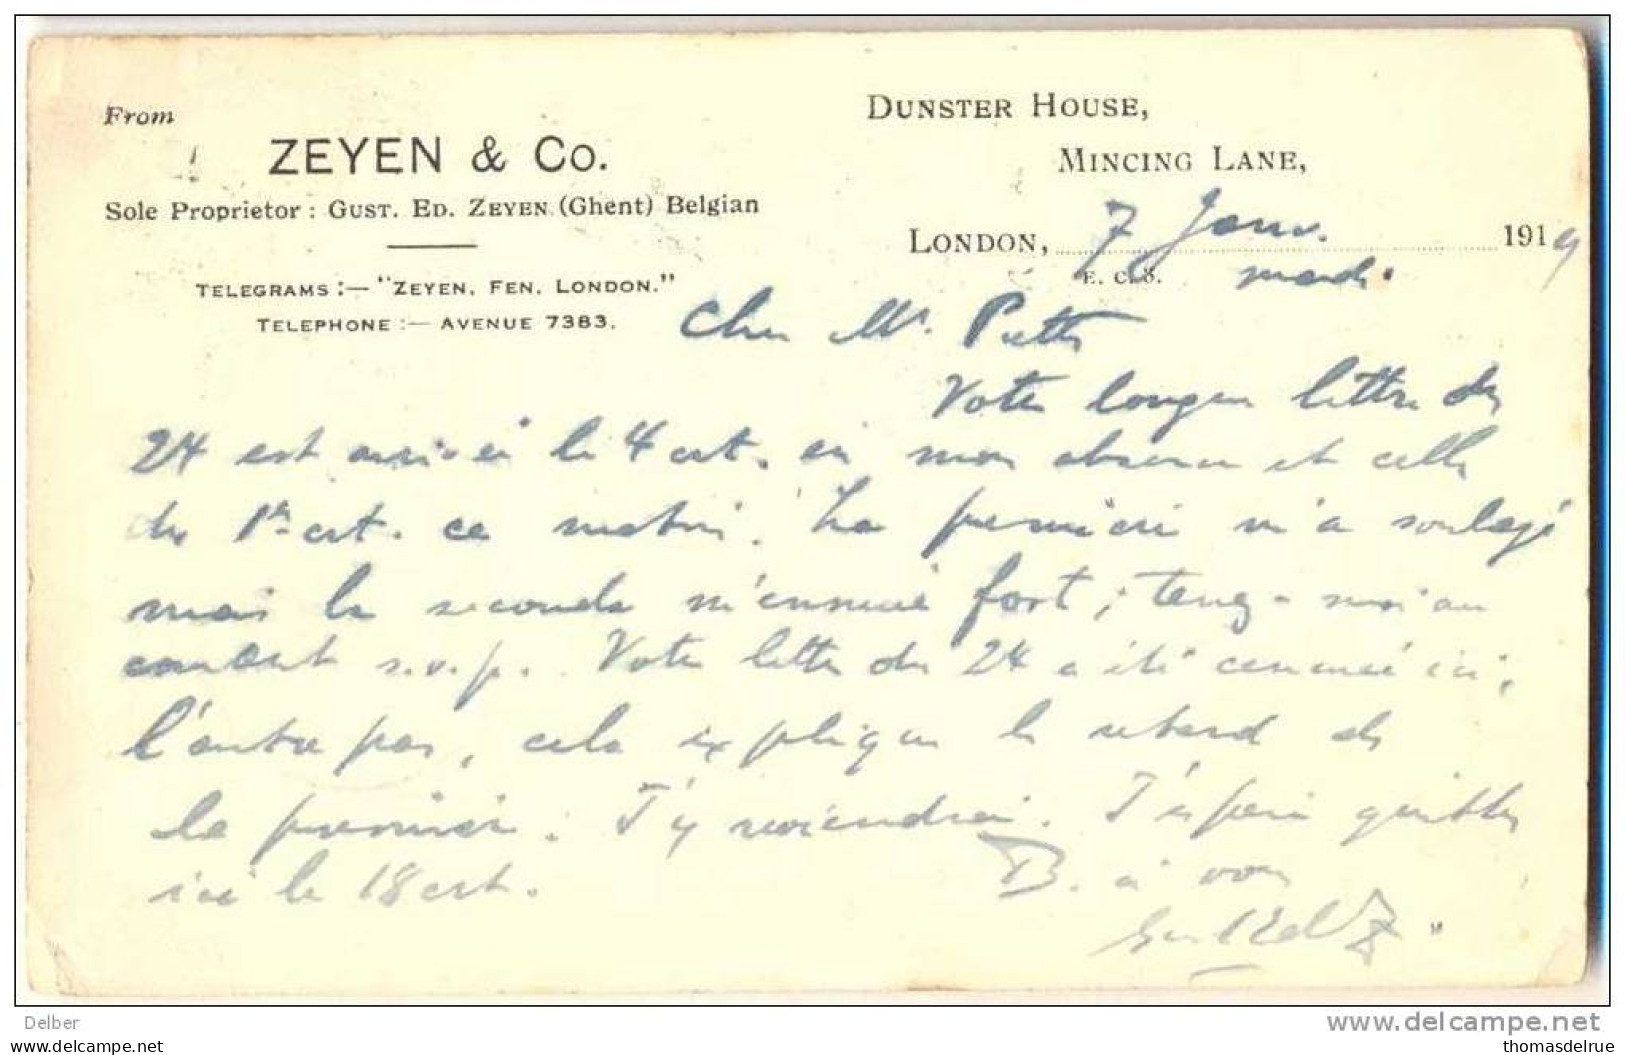 From
ZEYEN & Co.
Sole Proprietor: GUST. ED. ZEYEN (Ghent) Belgian
TELEGRAMS:— "ZEYEN, FEN, LONDON."
TELEPHONE:— AVENUE 7383.
DUNSTER HOUSE,
MINCING LANE,
LONDON, 7 Janv. 1919
E. C. 3. mardi.
Cher Mr.
Votre longue lettre du
24 est arrivée le 4 crt. en mon absence et celle
du 1er crt. ce matin. La première m'a soulagé
mais la seconde m'ennuie fort; tenez-moi au
courant s.v.p. Votre lettre du 24 a été censurée ici,
l'autre pas, cela explique le retard de
la première. J'y reviendrai. J'espère quitter
ici le 18 crt. B. à vous
Delber
www.delcampe.net
thomasdelrue